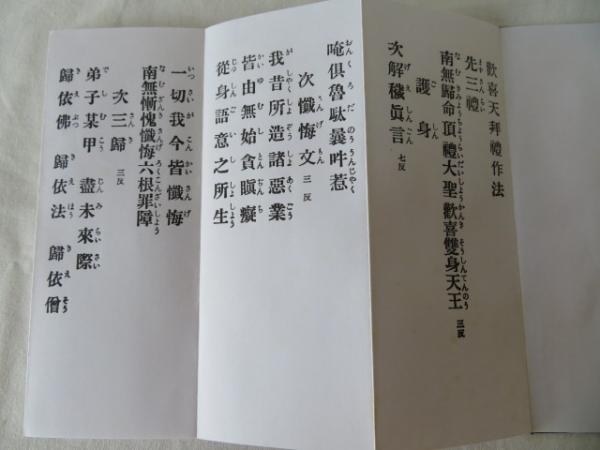 歡喜天拜禮作法
先三禮
南無歸命頂禮大聖歡喜雙身天王 三反
護身
次解穢眞言 七反
唵俱魯駄曩吽惹
次懺悔文 三反
我昔所造諸惡業
皆由無始貪瞋癡
從身語意之所生
一切我今皆懺悔
南無慚愧懺悔六根罪障
次三歸 三反
弟子某甲 盡未來際
歸依佛 歸依法 歸依僧